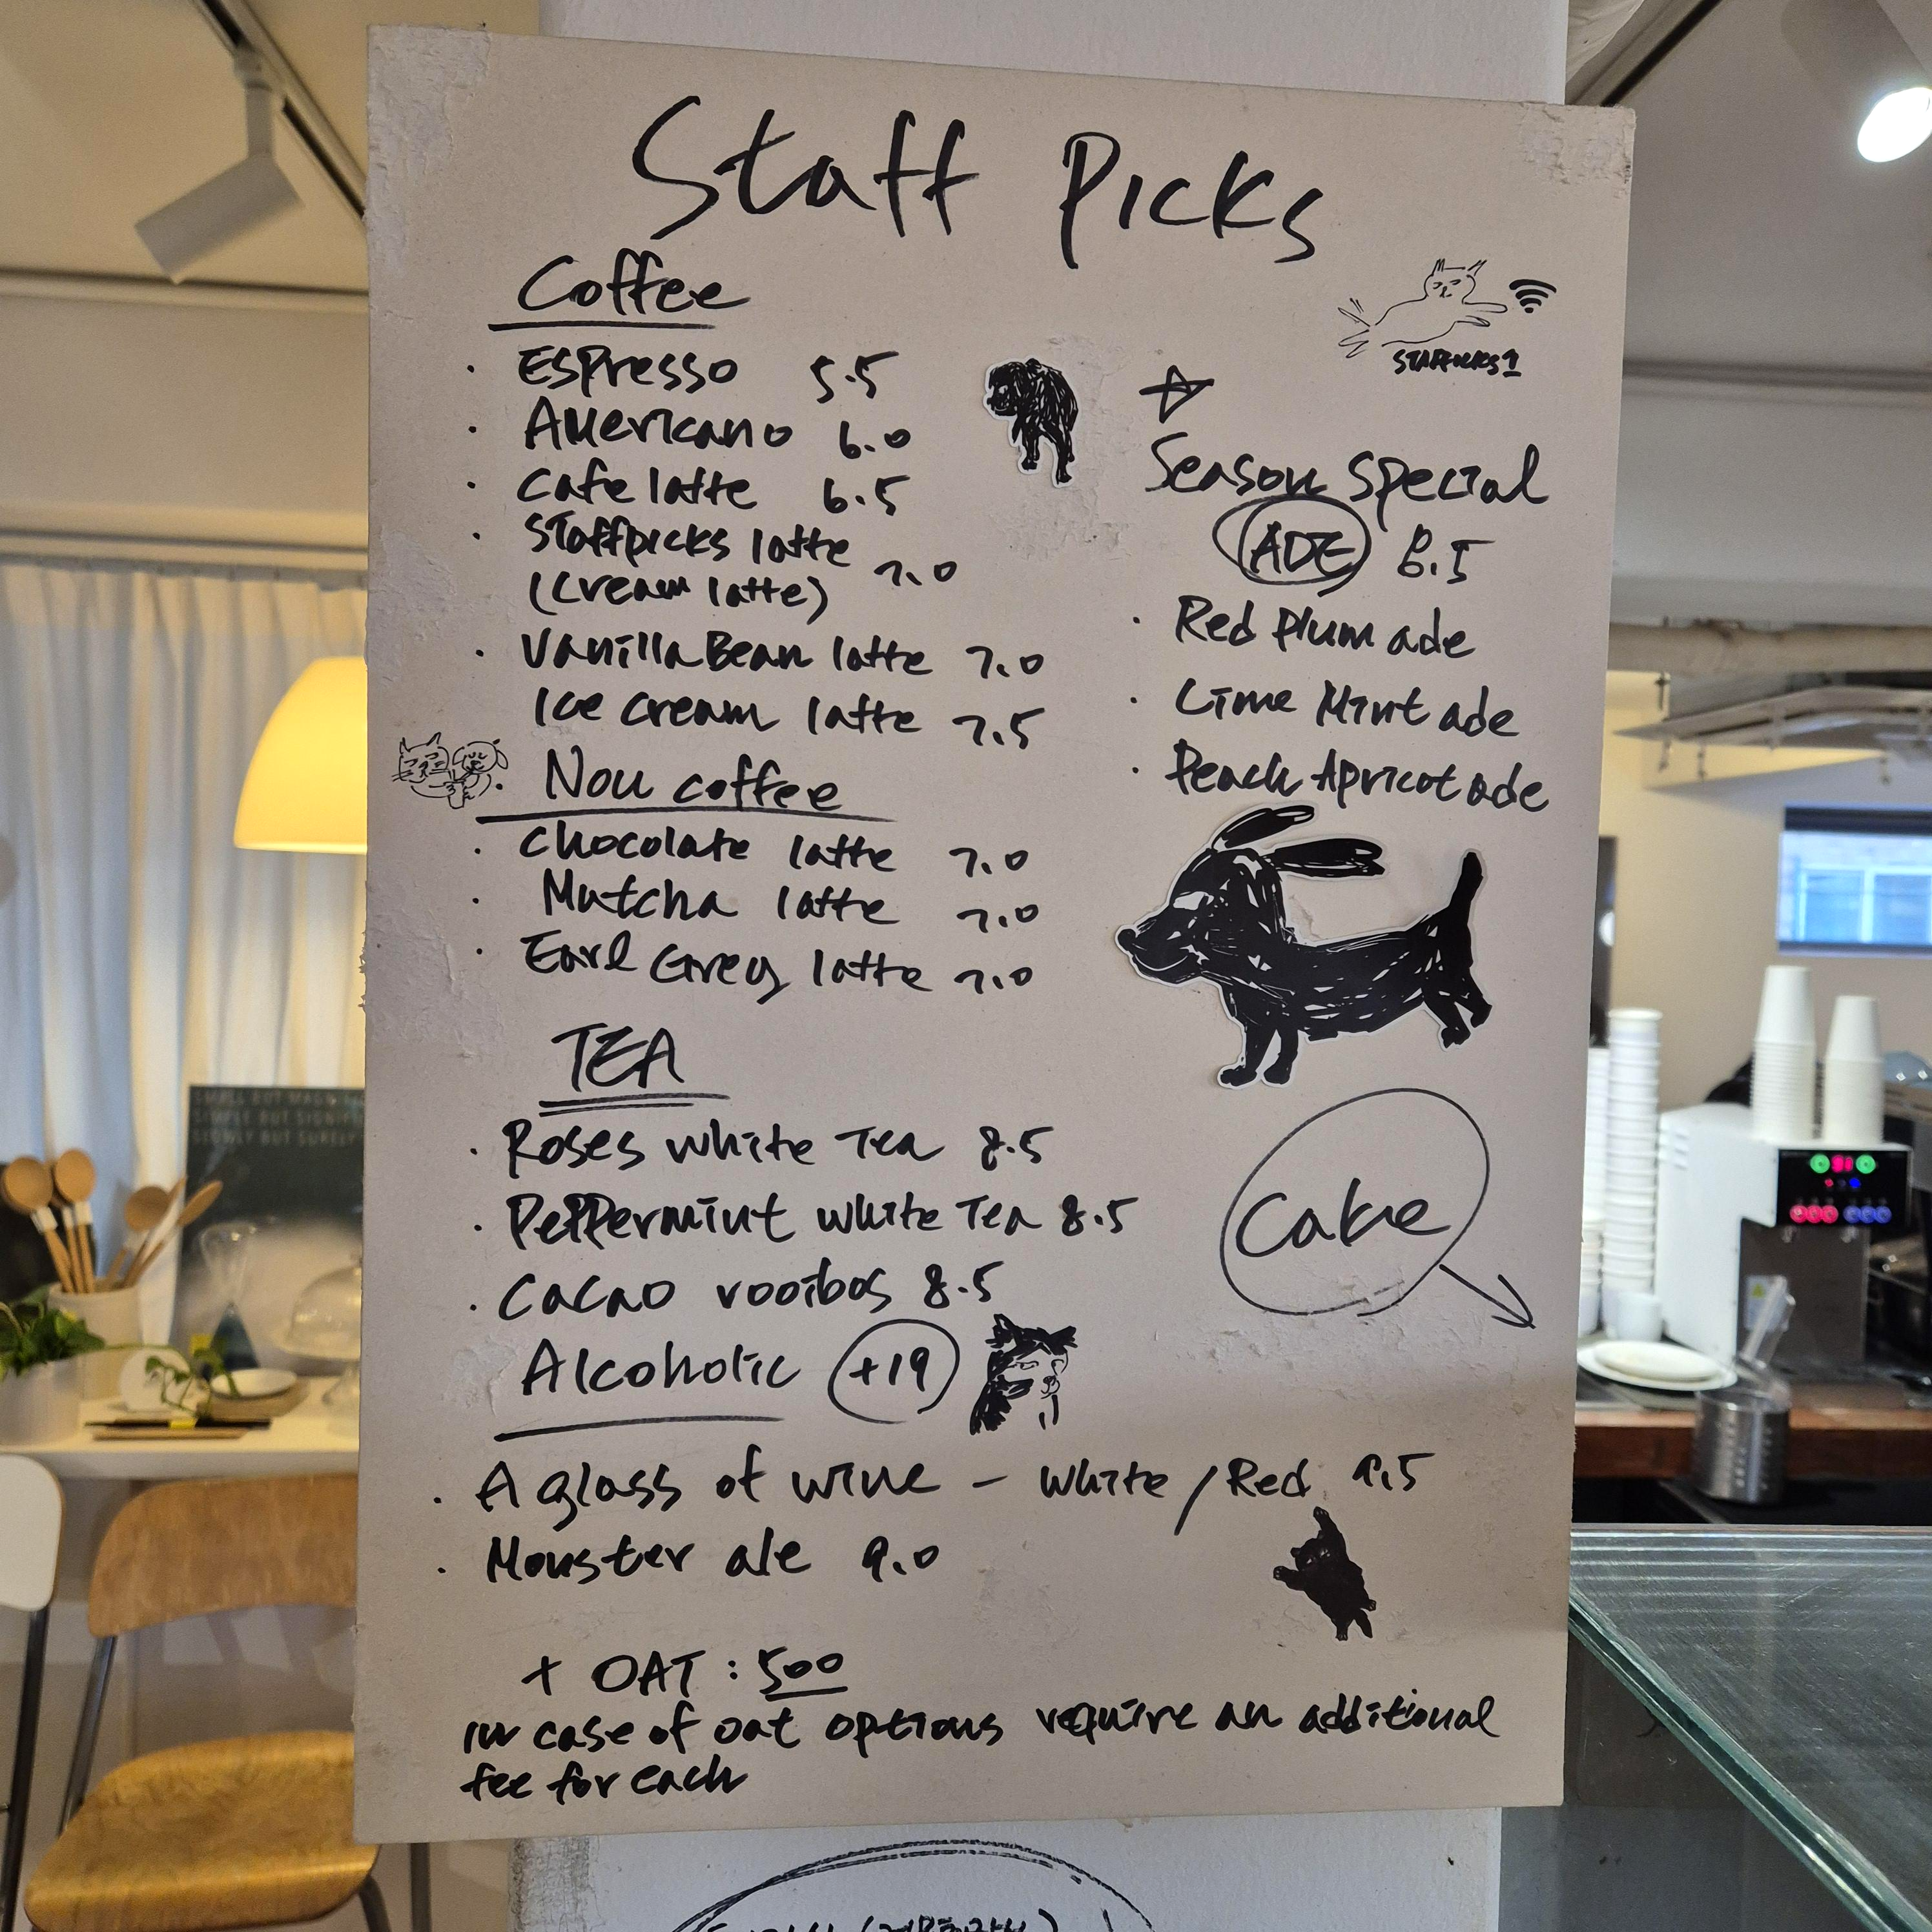 Staff Picks
Coffee
· Espresso 5.5
· Americano 6.0
· Cafe latte 6.5
· Staffpicks latte
(cream latte) 7.0
· Vanilla Bean latte 7.0
Ice cream latte 7.5
· Non coffee
· Chocolate latte 7.0
· Mutcha latte 7.0
· Earl Grey latte 7.0
TEA
· Roses white Tea 8.5
· Peppermint white Tea 8.5
· Cacao rooibos 8.5
Alcoholic +19
· A glass of wine - white / Red 9.5
· Monster ale 9.0
+ OAT : 500
in case of oat options require an additional
fee for each
STAFFPICKS1
☆
Season Special
ADE 6.5
· Red Plum ade
· Lime Mint ade
· Peach Apricot ade
Cake
SIMPLE BUT
SLOWLY BUT SURELY